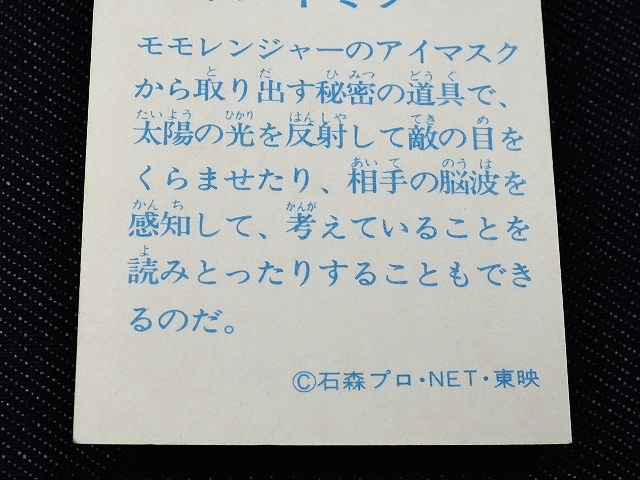 モモレンジャーのアイマスク
から取り出す秘密の道具で、
太陽の光を反射して敵の目を
くらませたり、相手の脳波を
感知して、考えていることを
読みとったりすることもでき
るのだ。
©石森プロ・NET・東映